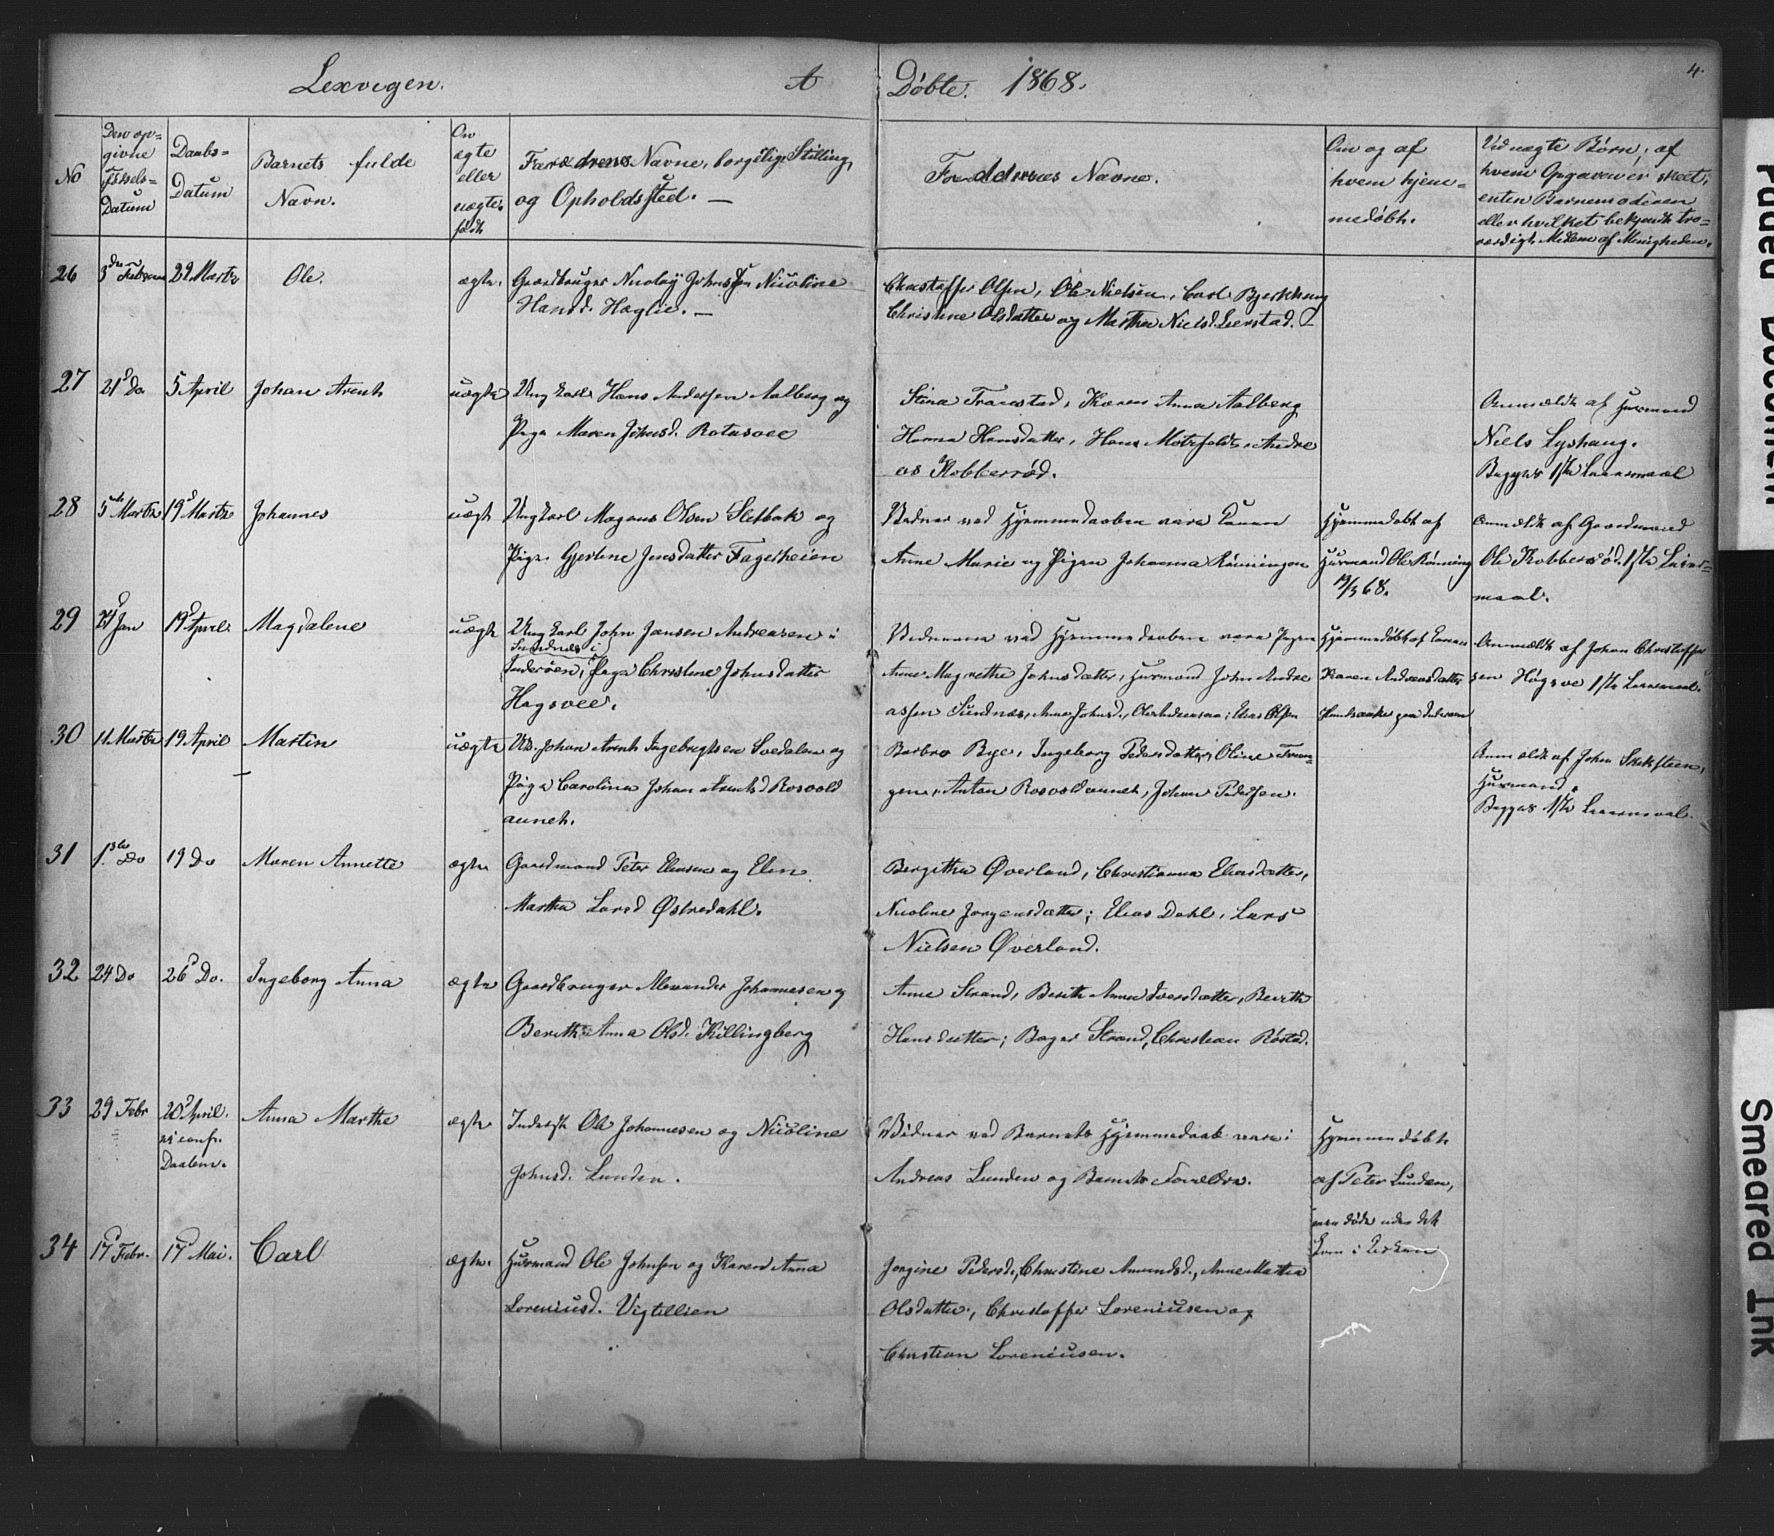 Lexvigen. A Døbte. 1868. 4.
No
Den op=
givne
Fødsels=
Datum
Daabs=
Datum
Barnets fulde
Navn.
Om
ægte
eller
uægte
født
Forældrenes Navne, borgelige Stilling,
og Opholdssted. —
Faddernes Navne.
Om og af
hvem hjem=
medøbt.
Ved uægte Børn, af
hvem Opgaven er skeet,
enten Barnemoderen
eller hvilket bekjendt tro=
værdigt Medlem af Menigheden.
26 3die Februar 29 Marts Ole. ægte. Gaardbruger Nicolay Johnsen Nicoline
Hansd. Haglie. —
Christoffer Olsen, Ole Nielsen, Carl Bjerkhaug
Christine Olsdatter og Martha Nielsd. Leerstad. —
27 21 Do 5 April Johan Arent uægte Ung Karl Hans Andersen Aalberg og
Pige Maren Johnsd. Rotasvee
Stina Transtad, Karen Anna Aalberg
Hanna Hansdatter, Hans Andre
as Kobberrød.
Anmeldt af Husmand
Niels Lyshaug.
Begges 1ste Leiermaal
28 5 Marts 19 Marts Johannes uægte Ungkarl Magnus Olsen Sletbak og
Pige Gjertine Jensdatter Fagerheien
Vidner ved Hjemmedaaben vare Konen
Anne Marie og Pigen Johanna Rønningen
Hjemmedøbt af
Husmand Ole Rønning
19/3 68.
Anmeldt af Gaardmand
Ole Kobberrød. 1ste Leier=
maal.
29 21 Jan 19 April. Magdalene uægte Ung Karl John Jansen Andreasen i
Sundnæs i
Inderøen, Pige Christine Johnsdatter
Hagsvee.
Vidnerne ved Hjemmedaaben vare Pigen
Anne Magrethe Johnsdatter, Husmand John Andre
assen Sundnæs, Anne Johnsd., Ole Andreassen, Elias Olsen
Hjemmedøbt af Konen
Karen Andreasdatter
Sundsaker paa Inderøen
Anmeldt af Johan Christoffer
sen Høgsve 1ste Leiermaal.
30 11 Marts 19 April Martin uægte Ungk. Johan Arnt Ingebrigtsen Svedalen og
Pige Carolina Johan Arntsd Rosvold
aunet.
Barbro Bye, Ingeborg Pedersdatter, Oline
gen, Anton Rosvoldaunet, Johan Pedersen.
Anmeldt af Johan
Husmand.
Begges 1ste Leiermaal.
31 1ste Do 19 Do Maren Annette ægte Gaardmand Peter Eliasen og Elen
Martha Larsd Østredahl.
Bergitha Øverland, Christianna Eliasdatter,
Nicoline Jørgensdatter; Elias Dahl, Lars
Nielsen Øverland.
32 24 Do 26 Do. Ingeborg Anna ægte Gaardbruger Alexander Johannesen og
Bereth Anna Olsd. Killingberg
Anne Strand, Bereth Anna Iversdatter, Bereth
Hansdatter; Strand, Christian Røstad.
33 29 Febr 20 April. Anna Marthe ægte Inderst Ole Johannesen og Nicoline
Johnsd. Lunden.
Vidner ved Barnets Hjemmedaab vare:
Andreas Lunden og Barnets Forældre.
Hjemmedøbt
af Peter Lunden,
men døde uden det
kom i Kirken
ei conf.
Daaben.
34 17 Febr. 17 Mai. Carl ægte. Husmand Ole Johnsen og Karen Anna
Loreniusd. Vigtillien
Jørgine Pedersd., Christine Amundsd., Anne Martha
Olsdatter, Christoffer Loreniusen og
Christian Loreniusen.
Faded Document
Smeared Ink